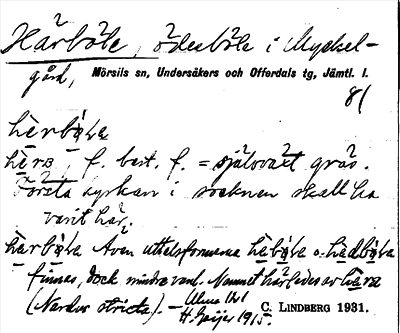 Härböle, ödesböle i Myckel-
gård, Mörsils sn, Undersåkers och Offerdals tg, Jämtl. l.
81
hèrbø̀la
hèrs, f. best. f. = självväxt gräs.
Första kyrkan i socknen skall ha
varit här.
hàrbø̀la Även uttalsformerna hèbø̀la o. hàdbø̀la
finnas, dock mindre vanl. Namnet härledes av hàrs
(Nardus stricta). –
H. Geijer 1915. C. LINDBERG 1931.